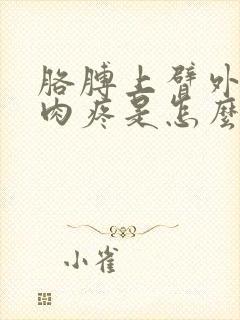 胳膊上臂外
肉疼是怎麼
小雀